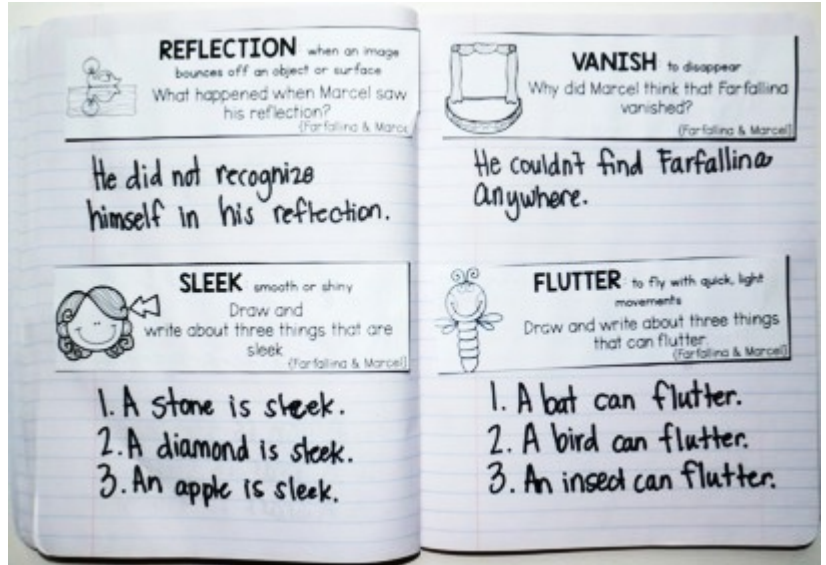 REFLECTION when an image
bounces off an object or surface
What happened when Marcel saw
his reflection?
(Farfallina & Marce
He did not recognize
himself in his reflection.
SLEEK smooth or shiny
Draw and
write about three things that are
sleek
(Farfallina & Marcel)
1. A stone is sleek.
2. A diamond is sleek.
3. An apple is sleek.
VANISH to disappear
Why did Marcel think that Farfallina
vanished?
(Farfallina & Marcel)
He couldn't find Farfallina
anywhere.
FLUTTER to fly with quick, light
movements
Draw and write about three things
that can flutter.
(Farfallina & Marcel)
1. A bat can flutter.
2. A bird can flutter.
3. An insect can flutter.